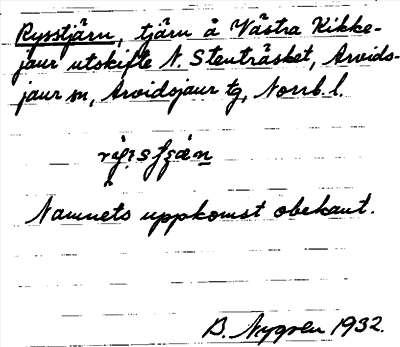 Rysstjärn, tjärn å Västra Kikke-
jaur utskifte N. Stenträsket, Arvids-
jaur sn, Arvidsjaur tg, Norrb. l.
Namnets uppkomst obekant.
B. Nygren 1932.